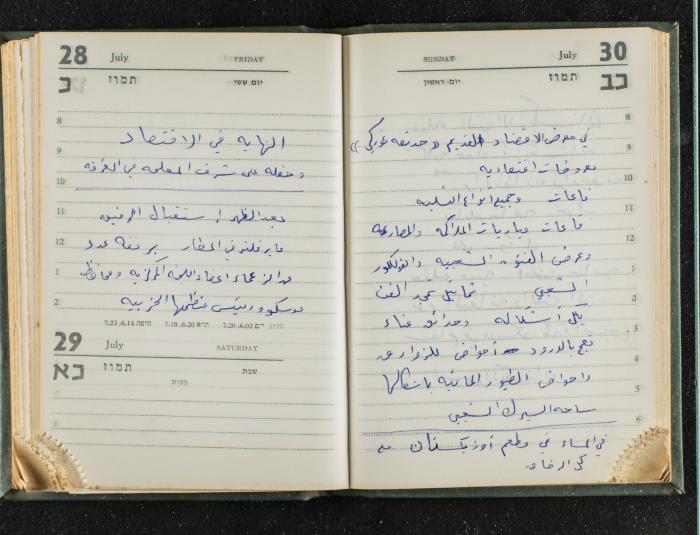 28 July FRIDAY
כ תמוז יום ששי
8
النهاية في الاقتصاد
9
وحفلة على شرف المعلمة في الغرفة
10
11
بعد الظهر استقبال الرفيق
12
فايرفلنر في المطار برفقة عدد
1
من الزعماء اعضاء اللجنة المركزية ومحافظ
2
موسكو ورئيس منظمتها الحزبية
7.23 ,6.14 חיפה 7.18 ,6.20 ת"א 7.20 ,6.02 י-ם
29 July SATURDAY
כא תמוז שבת
מטות
SUNDAY July 30
יום ראשון תמוז כב
8
في معرض الاقتصاد القديم "حديقة غوركي"
9
معروضات اقتصادية
10
قاعات وجميع انواع التسلية
11
قاعات مباريات الملاكمة والمصارعة
12
وعرض الفنون الشعبية والفولكلور
1
الشعبي تماثيل تمجد الفن
2
بكل اشكاله وحدائق غناء
3
تعج بالورود احواض للزوارق
4
واحواض الطيور المائية باشكالها
5
ساحة السيرك الشعبي
6
في المساء في مطعم اوزبكستان مع
كل الرفاق